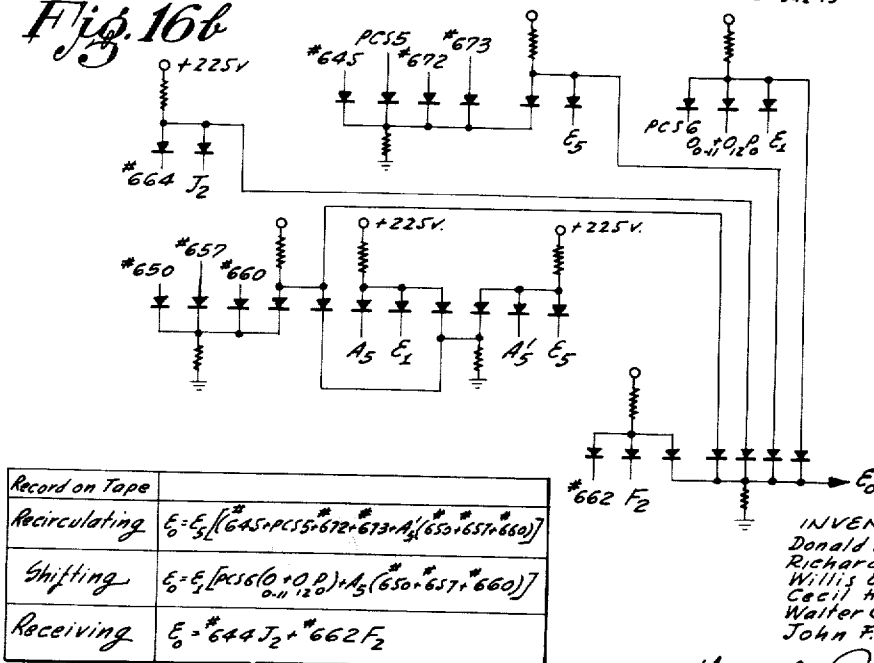 Fig. 16b
+225v
#664 J2
#645 PCS5 #672 #673
E5
PCS6 O0-11+O12P0 E1
#650 #657 #660
+225v.
A5 E1
+225v.
A5' E5
#662 F2
E0
Record on Tape
Recirculating E0=E5[(#645+PCS5+#672+#673+A5'(#650+#657+#660)]
Shifting E0=E1[PCS6(O0-11+O12P0)+A5(#650+#657+#660)]
Receiving E0=#644 J2+#662 F2
INVEN
Donald
Richard
Willis
Cecil H
Walter
John F.